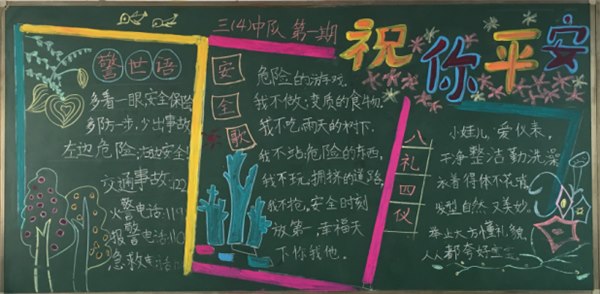 三(4)中队 第一期
祝你平安
警世语
多看一眼安全保险
多防一步,少出事故
左边危险;右边安全!
交通事故:122
火警电话:119
报警电话:110
急救电话
安全歌
危险的游戏,
我不做;变质的食物,
我不吃;雨天的树下,
我不站;危险的东西,
我不玩;拥挤的道路,
我不抢,安全时刻
放第一,幸福天
下你我他。
八礼四仪
小娃儿,爱仪表,
干净整洁勤洗澡
衣着得体不花哨
发型自然又美妙。
举止大方懂礼貌
人人都夸好宝宝